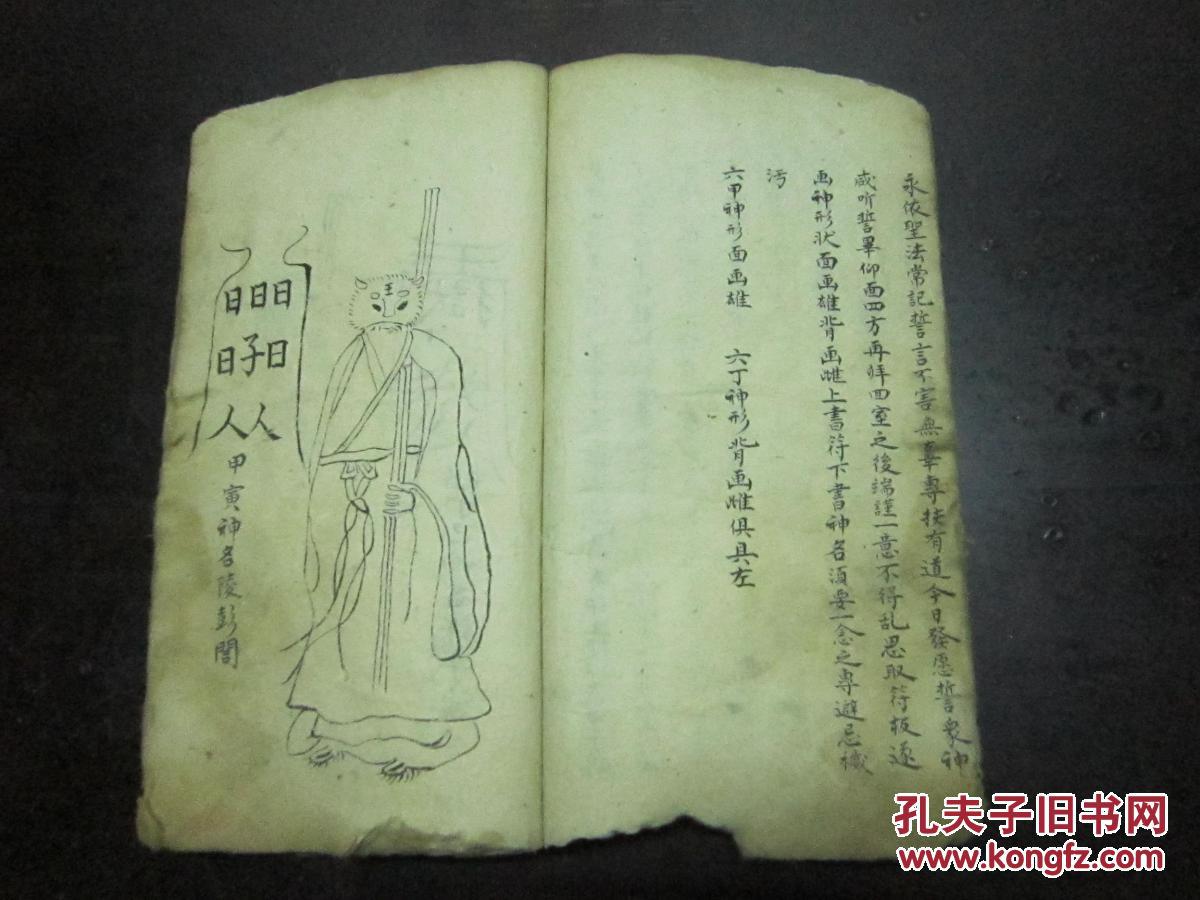 永依聖法常記誓言不害無辜專扶有道今日發愿誓衆神
咸听誓畢仰面四方再拜四室之後端謹一意不得乱思取符板逐
画神形状面画雄背画雌上書符下書神名須要一念之專避忌穢
污
六甲神形面画雄 六丁神形背画雌俱具左
日日日
日子日
人人
甲寅神名陵彭誾
孔夫子旧书网
www.kongfz.com